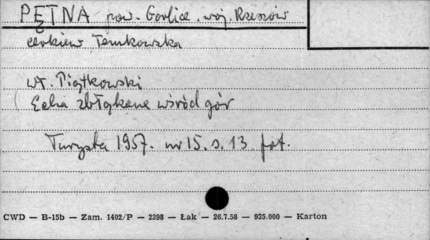 PĘTNA pow. Gorlice, woj. Rzeszów
cerkiew Łemkowska
Wł. Piątkowski
Echa zbłąkane wśród gór
Turysta 1957. nr 15. s. 13 fot.
CWD — B-15b — Zam. 1402/P — 2398 — Łak — 26.7.58 — 935.000 — Karton